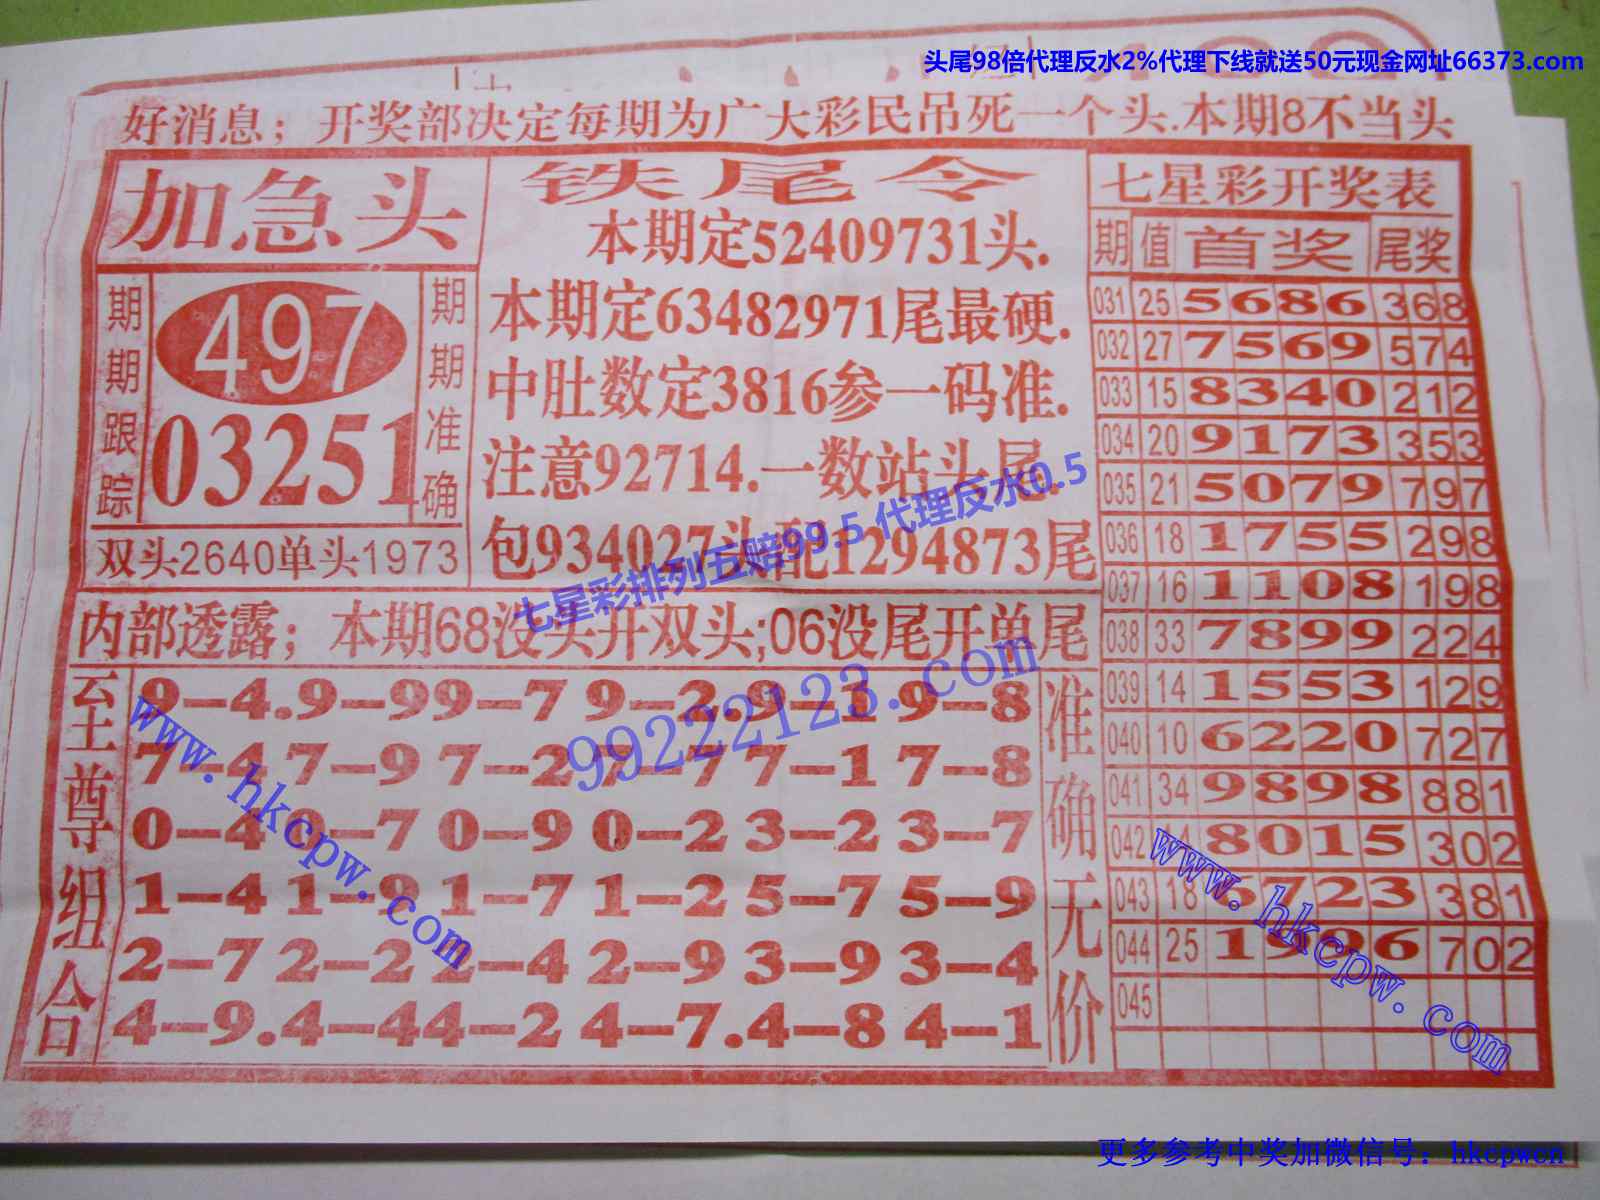 头尾98倍代理反水2%代理下线就送50元现金网址66373.com
好消息；开奖部决定每期为广大彩民吊死一个头.本期8不当头
加急头
期期跟踪
497
03251
期期准确
双头2640单头1973
铁尾令
本期定52409731头.
本期定63482971尾最硬.
中肚数定3816参一码准.
注意92714.一数站头尾.
包934027头配1294873尾
七星彩排列五赔99.5 代理反水0.5
内部透露；本期68没头开双头;06没尾开单尾
99222123.com
至尊组合
9-4.9-99-7 9-2.9-1 9-8
7-4 7-9 7-2 7-7 7-1 7-8
0-4 0-7 0-9 0-2 3-2 3-7
1-4 1-9 1-7 1-2 5-7 5-9
2-7 2-2 2-4 2-9 3-9 3-4
4-9.4-44-2 4-7.4-8 4-1
准确无价
www.hkcpw.com
七星彩开奖表
期 值 首奖 尾奖
031 25 5686 368
032 27 7569 574
033 15 8340 212
034 20 9173 353
035 21 5079 797
036 18 1755 298
037 16 1108 198
038 33 7899 224
039 14 1553 129
040 10 6220 727
041 34 9898 881
042 14 8015 302
043 18 6723 381
044 25 1 26 702
045
www.hkcpw.com
更多参考中奖加微信号：hkcpwcn